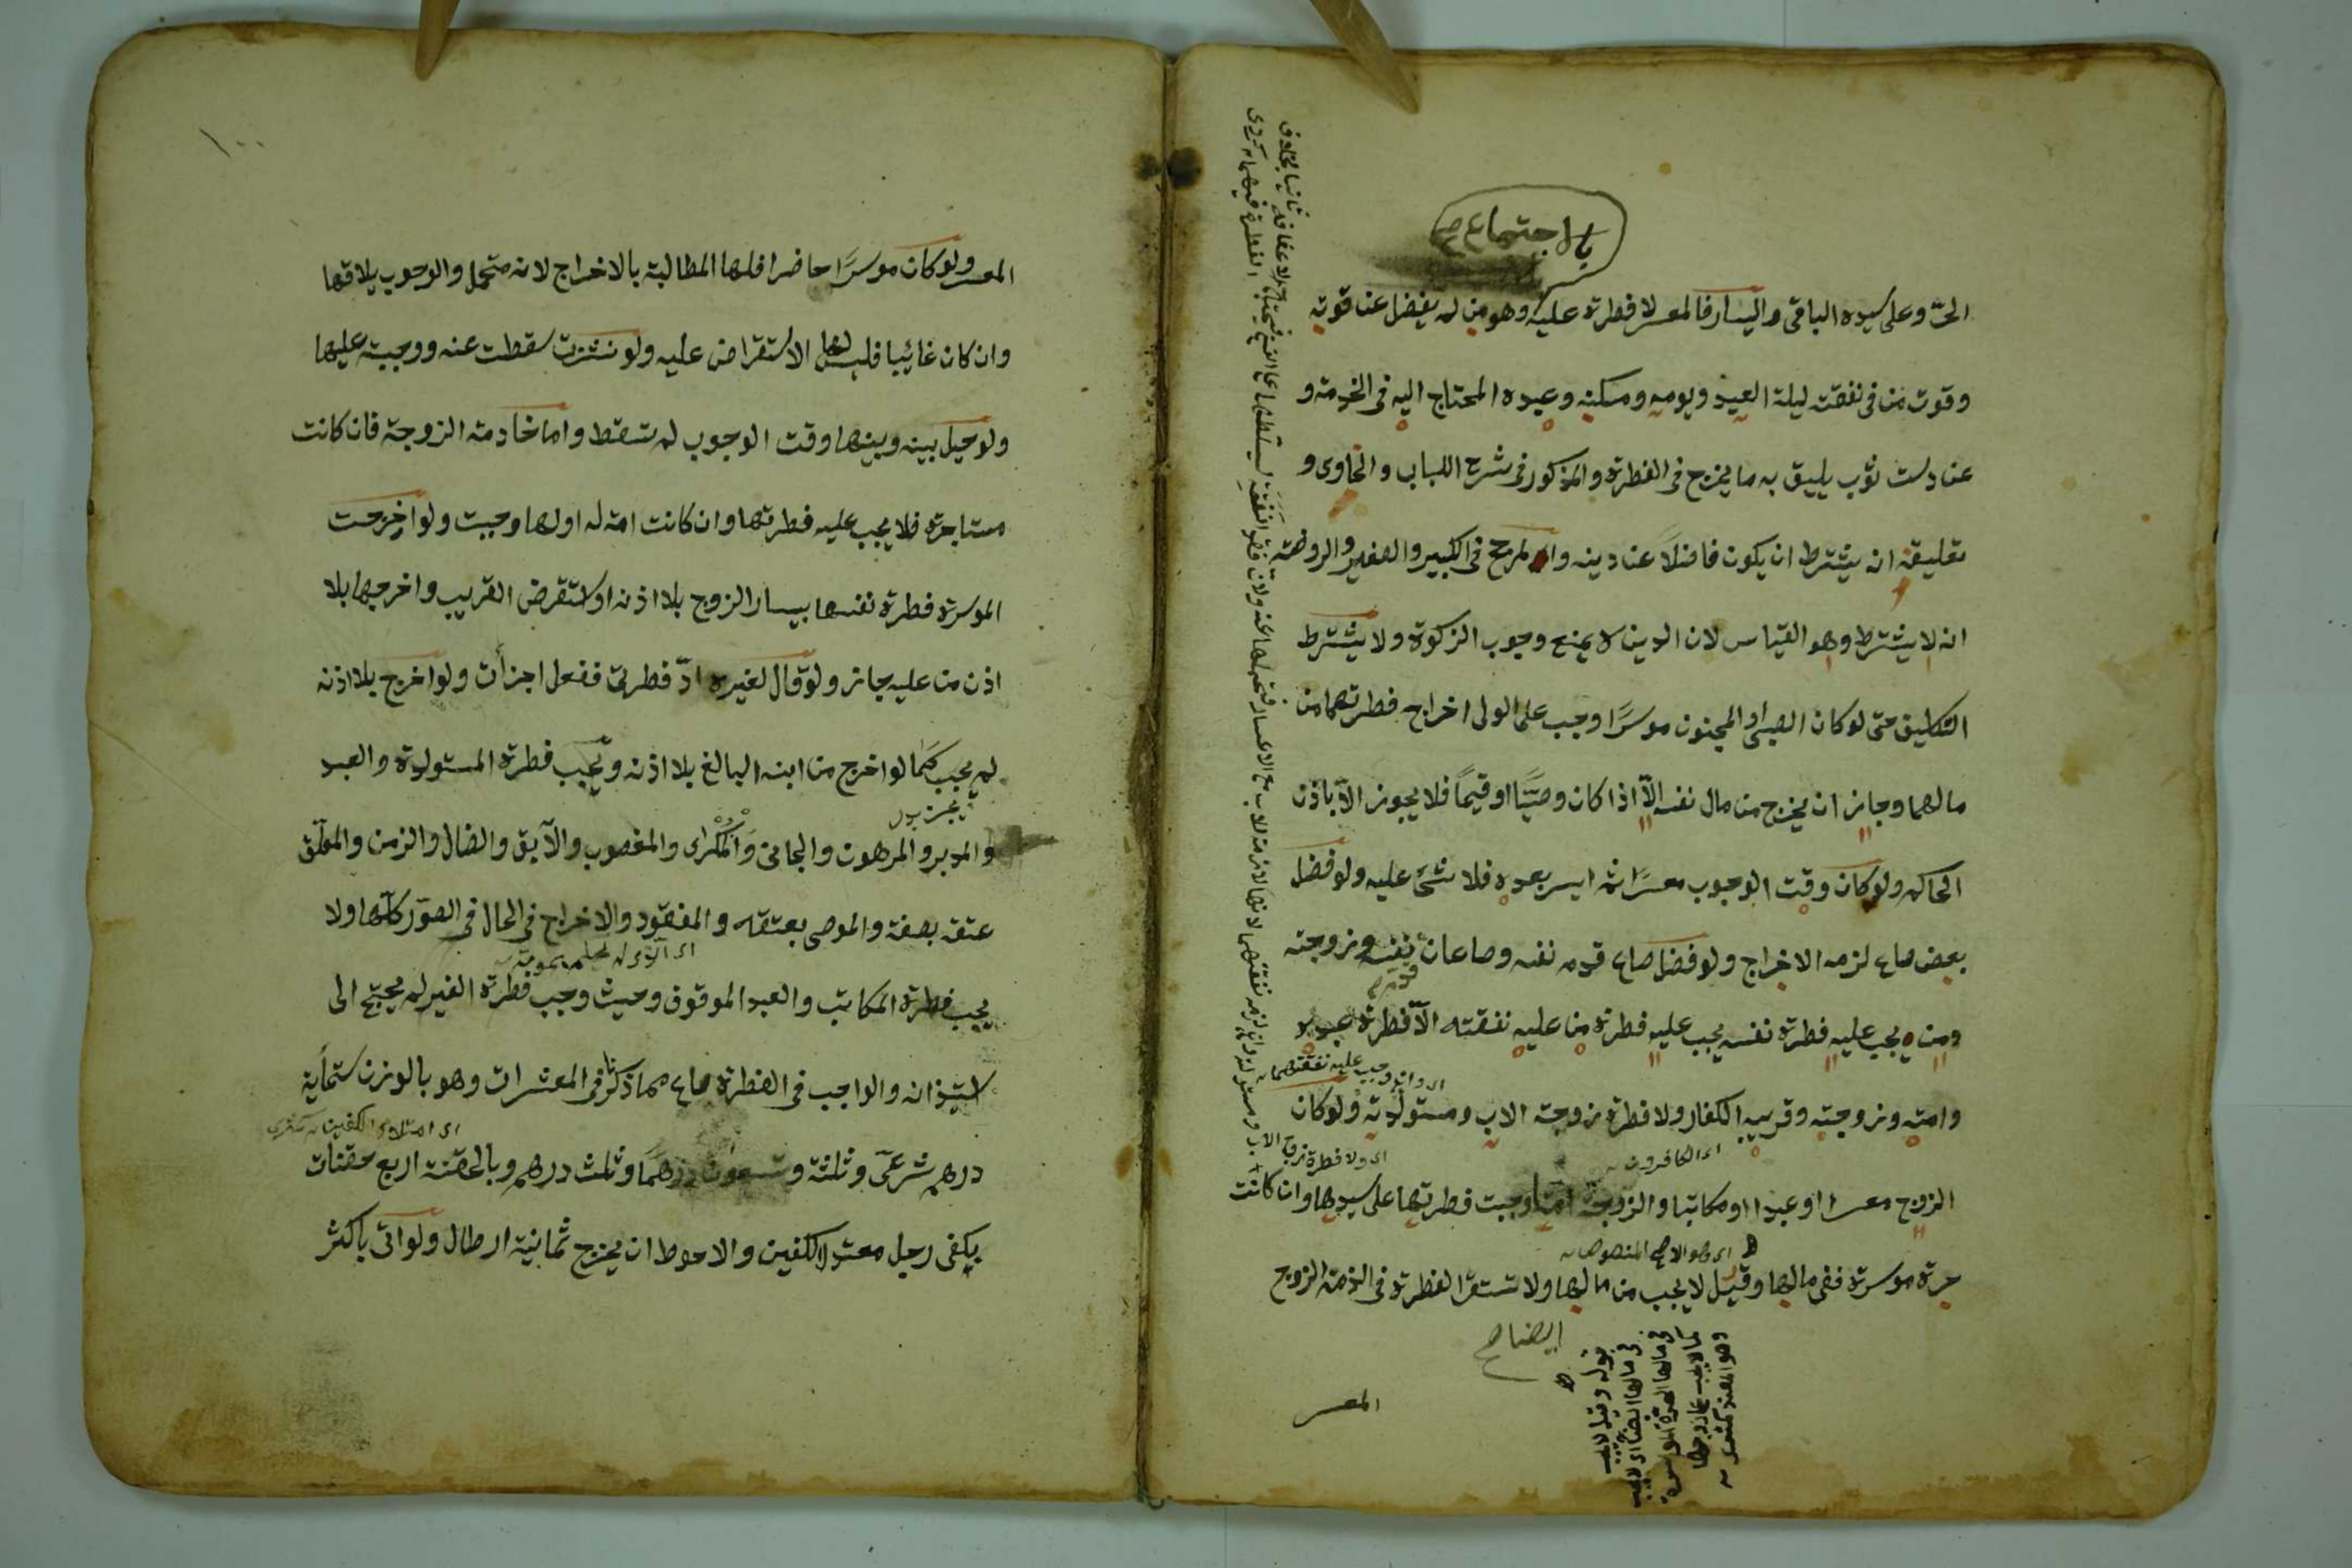 بالاجتماع صح
الحر وعلى سيده الباقى واليسار فالمعسر لا فطرة عليه وهو من لم يفضل عن قوته
وقوت من فى نفقته ليلة العيد ويومه ومسكنه وعبده المحتاج اليه فى الخدمة و
عن دست ثوب يليق به ما يخرج فى الفطرة والمذكور فى شرح اللباب والحاوى و
تعليقه ان يشترط ان يكون فاضلاً عن دينه والمرجح فى الكبير والصغير والروضة
انه لا يشترط وهو القياس لان الدين لا يمنع وجوب الزكوة ولا يشترط
التكليف حتى لو كان الصبى او المجنون موسرًا وجب على الولى اخراج فطرتهما من
مالهما وجاز ان يخرج من مال نفسه الّا اذا كان وصيًّا او قيمًا فلا يجوز الّا باذن
الحاكم ولو كان وقت الوجوب معسرًا ثم ايسر بعده فلا شئ عليه ولو فضل
بعض صاع لزمه الاخراج ولو فضل صاع قدم نفسه وصاعان نفسه وزوجته
ومن يجب عليه فطرة نفسه يجب عليه فطرة من عليه نفقته الّا فطرة عبده
اى وان وجب عليه نفقتهما
وامته وزوجته وقريبه الكفار ولا فطرة زوجة الاب ومستولدته ولو كان
اى ولا فطرة زوج الاب
اى الكافرون
الزوج معسرا او عبدا او مكاتبا والزوجة امة وجبت فطرتها على سيدها وان كانت
اى وهو الاصح المنصوص
حرة موسرة ففى مالها وقيل لا يجب من مالها ولا تستقر الفطرة فى الذمة الزوج
ايضا صح
قوله وقيل لا يجب
فى مالها ايضا اى لا يجب
فى مالها الحرة الموسرة
كما لا يجب على زوجها
وهو المعتمد
المعسر
١٠٠
المعسر ولو كان موسرًا حاضرا فلها المطالبة بالاخراج لانه متحمل والوجوب يلاقها
وان كان غائبا فليس لها الاستقراض عليه ولو نشزت سقطت عنه ووجبت عليها
ولو حيل بينه وبينها وقت الوجوب لم تسقط واما خادمة الزوجة فان كانت
مستاجرة فلا يجب عليه فطرتها وان كانت امة له اولها وجبت ولو اخرجت
الموسرة فطرة نفسها بيسار الزوج بلا اذنه او استقرض القريب واخرجها بلا
اذن من عليه جاز ولو قال لغيره ادّ فطرتى ففعل اجزأت ولو اخرج بلا اذنه
لم يجب كما لو اخرج من ابنه البالغ بلا اذنه ويجب فطرة المستولدة والعبد
والمدبر والمرهون والجانى والمكرى والمغصوب والآبق والضال والزمن والمعلّق
عتقه بصفة والموصى بعتقه والمفقود والاخراج فى الحال فى الصور كلّها ولا
يجب فطرة المكاتب والعبد الموقوف وحيث وجب فطرة الغير لم يحتج الى
استيذان والواجب فى الفطرة صاع مما ذكرنا فى المعشرات وهو بالوزن ستمأية
اى امتلاء الكفين
درهم شرعى وثلثة وتسعون درهمًا وثلث درهم وبالحفنة اربع حفنات
بكفى رجل معتدل الكفين والاحوط ان يخرج ثمانية ارطال ولو اتى باكثر